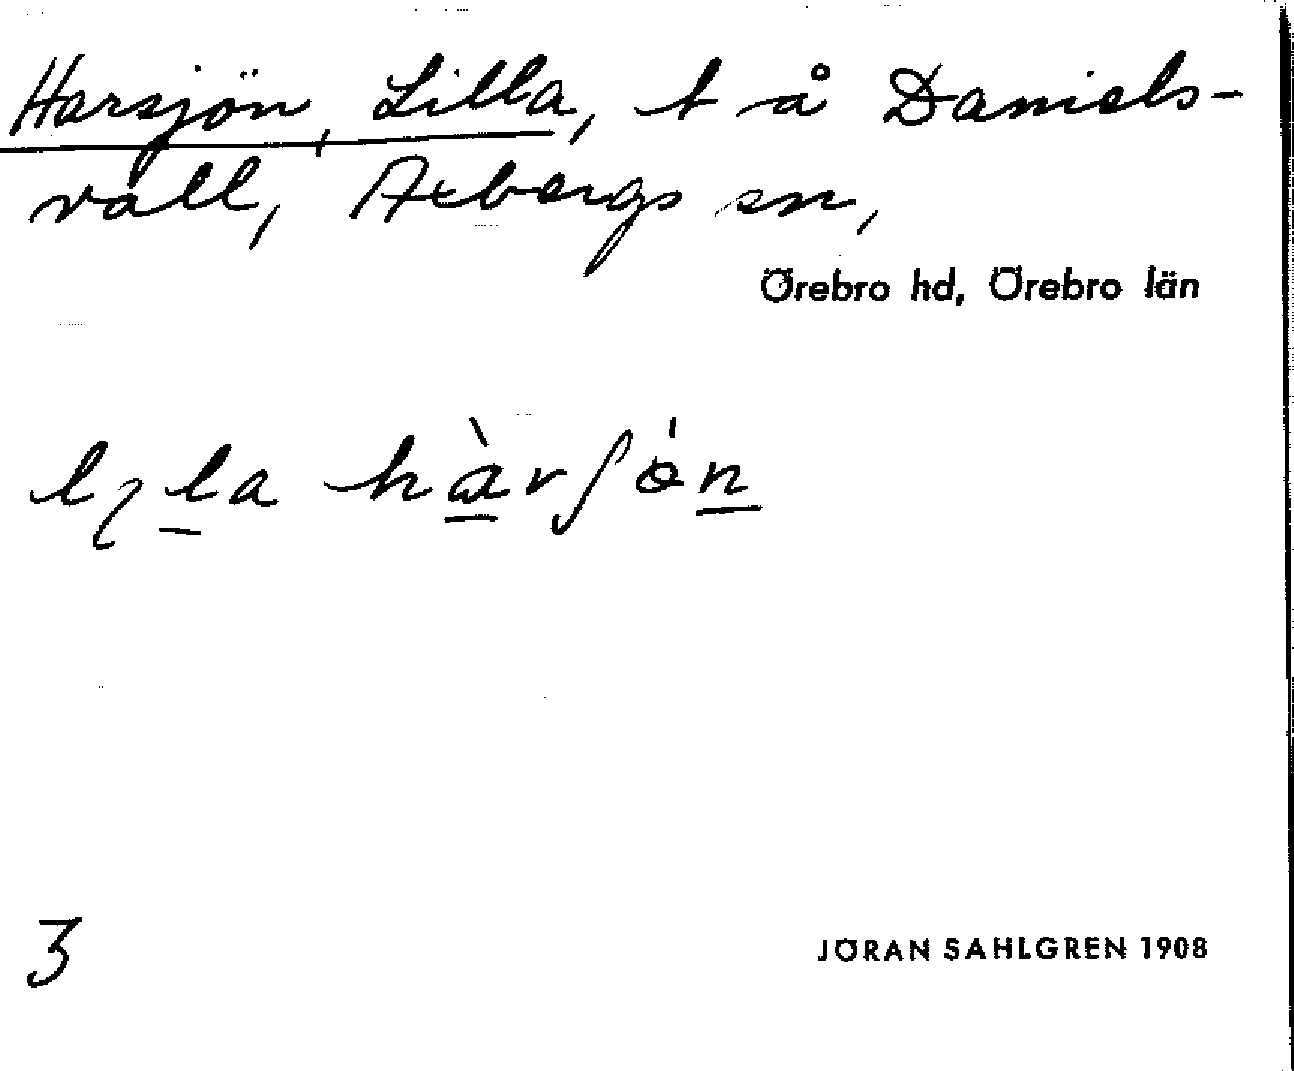 Harsjön, Lilla, t å Daniels-
vall, Axbergs sn,
Örebro hd, Örebro län
3
JÖRAN SAHLGREN 1908